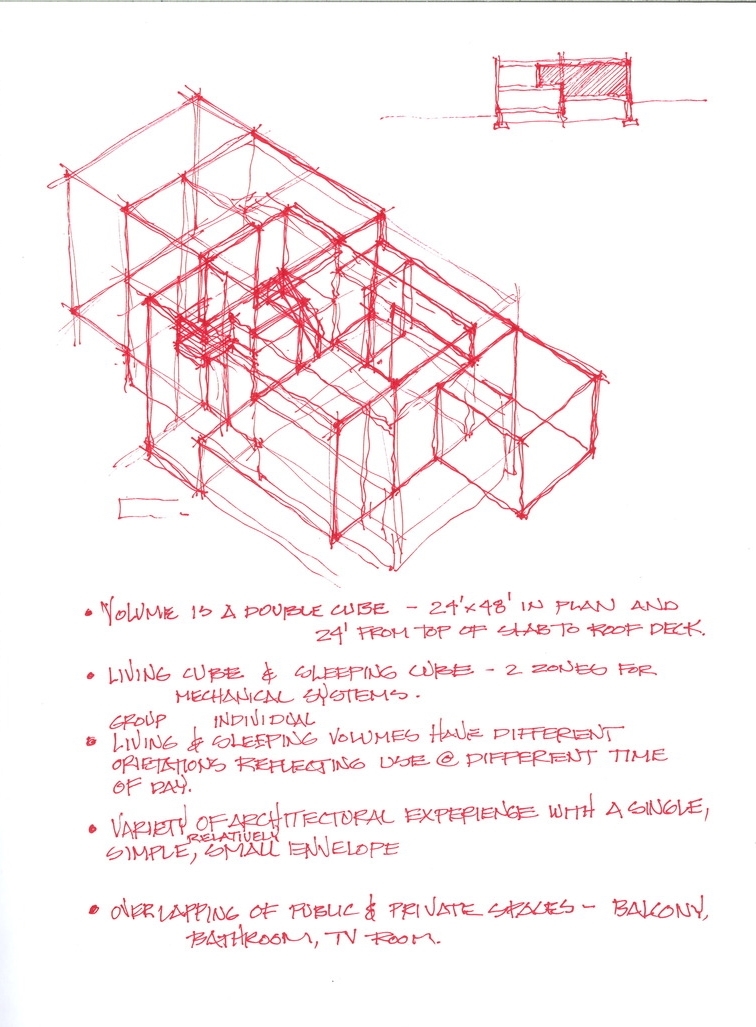 • VOLUME IS A DOUBLE CUBE – 24'x48' IN PLAN AND
24' FROM TOP OF SLAB TO ROOF DECK.
• LIVING CUBE & SLEEPING CUBE – 2 ZONES FOR
MECHANICAL SYSTEMS.
GROUP INDIVIDUAL
• LIVING & SLEEPING VOLUMES HAVE DIFFERENT
ORIETATIONS REFLECTING USE @ DIFFERENT TIME
OF DAY.
• VARIETY OF ARCHITECTURAL EXPERIENCE WITH A SINGLE,
RELATIVELY
SIMPLE, SMALL ENVELOPE
• OVERLAPPING OF PUBLIC & PRIVATE SPACES – BALCONY,
BATHROOM, TV ROOM.